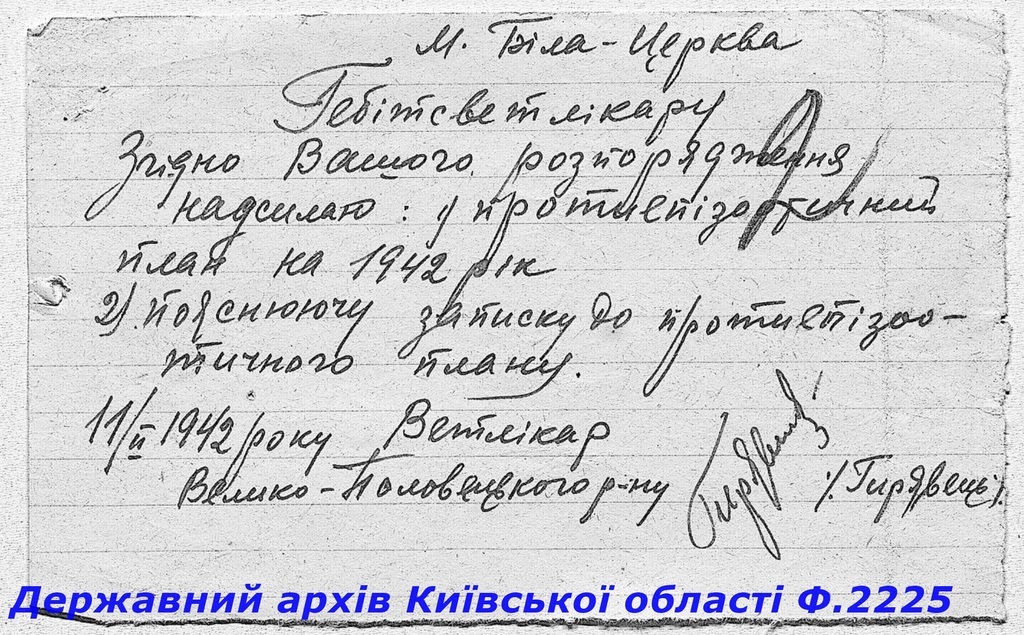 м. Біла-Церква
Гебітсветлікару
Згідно Вашого розпорядження
надсилаю: 1) протиепізоотичний
план на 1942 рік
2) пояснюючу записку до протиепізоо-
тичного плану.
11/II 1942 року Ветлікар
Велико-Половецького р-ну Гирявець /Гирявець/.
Державний архів Київської області Ф.2225